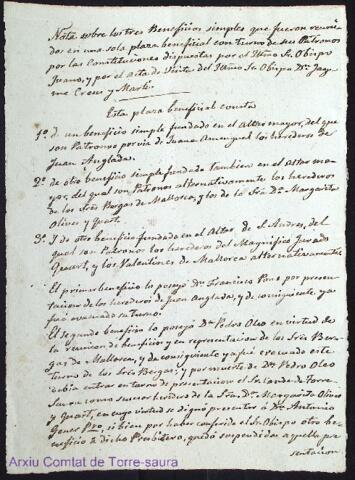 Nota sobre los tres Beneficios simples que fueron reuni-
dos en una sola plaza beneficial con turno de sus Patronos
por las Constituciones dispuestas por el Illmo Sr. Obispo
Juano, y por el acta de Visita del Illmo Sr. Obispo Dn. Jay-
me Creus y Martí.
Esta plaza beneficial consta
1º. d. un beneficio simple fundado en el Altar mayor, del que
son Patronos por via de Juana Amengual los herederos de
Juan Anglada.
2º. de otro beneficio simple fundado tambien en el Altar ma-
yor, del qual son Patronos alternativamente los herederos
de los Srès Bergas de Mallorca, y los de la Sra. Dª. Margarita
Olives y Quart.
3º. Y de otro beneficio fundado en el Altar de S. Andres, del
qual son Patronos los herederos del Magnifico Jurado
y los Valentines de Mallorca alternativamente
El primer beneficio lo posejó Dn. Francisco Pons por presen-
tacion de los herederos de Juan Anglada, y de consiguiente, ya
fué evacuado su turno.
El segundo beneficio lo posejó Dn. Pedro Oleo en virtud de
la reunion de beneficios, y en representacion de los Srès Ber-
gas de Mallorca, y de consiguiente ya fué evacuado este
turno de los Srès Bergas; y por muerte de Dn. Pedro Oleo
debia entrar en turno de presentacion el Sr. Conde de Torre-
saura como sucesor heredero de la Sra. Dª. Margarita Olives
y Quart, en cuya virtud se dignó presentar á Dn. Antonio
Gener Pro, si bien por haber conferido el Sr. Obispo otro be-
neficio á dicho Presbitero, quedó suspendida aquella pre
sentacion
Arxiu Comtat de Torre-saura